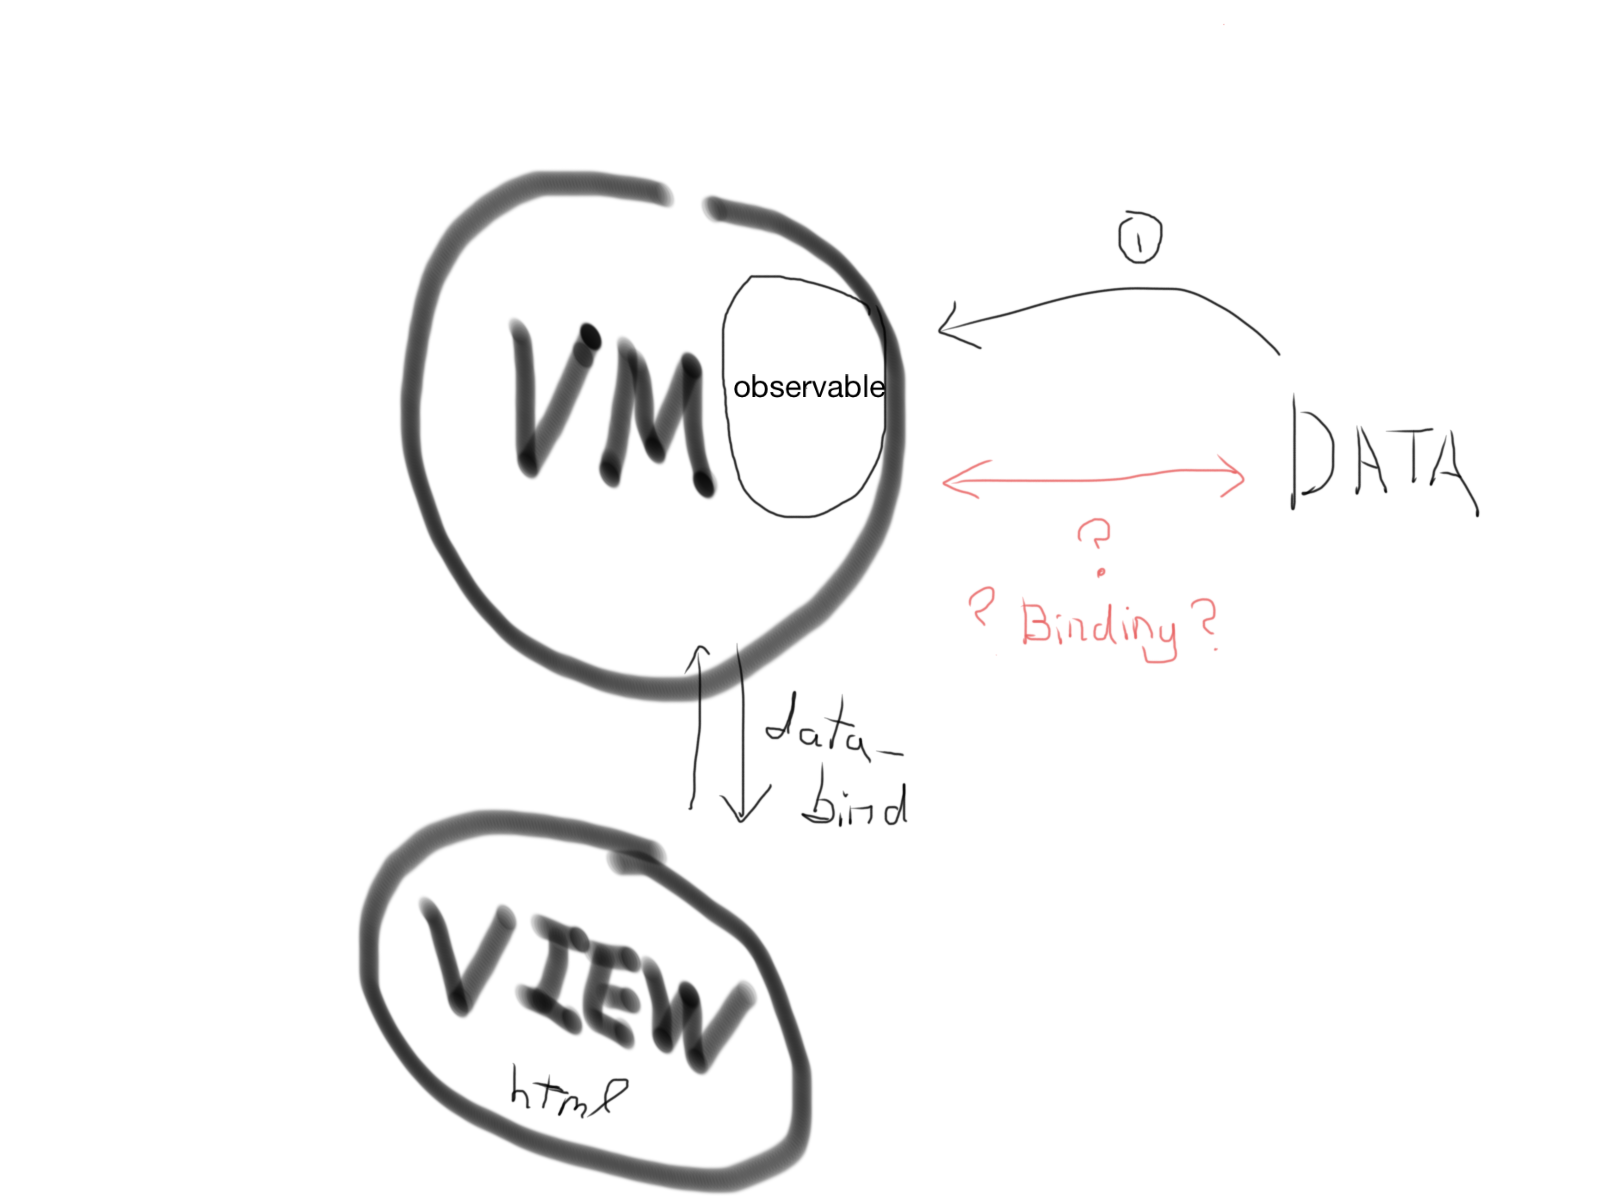 1
VM
observable
DATA
?
? Binding?
data_
bind
VIEW
html